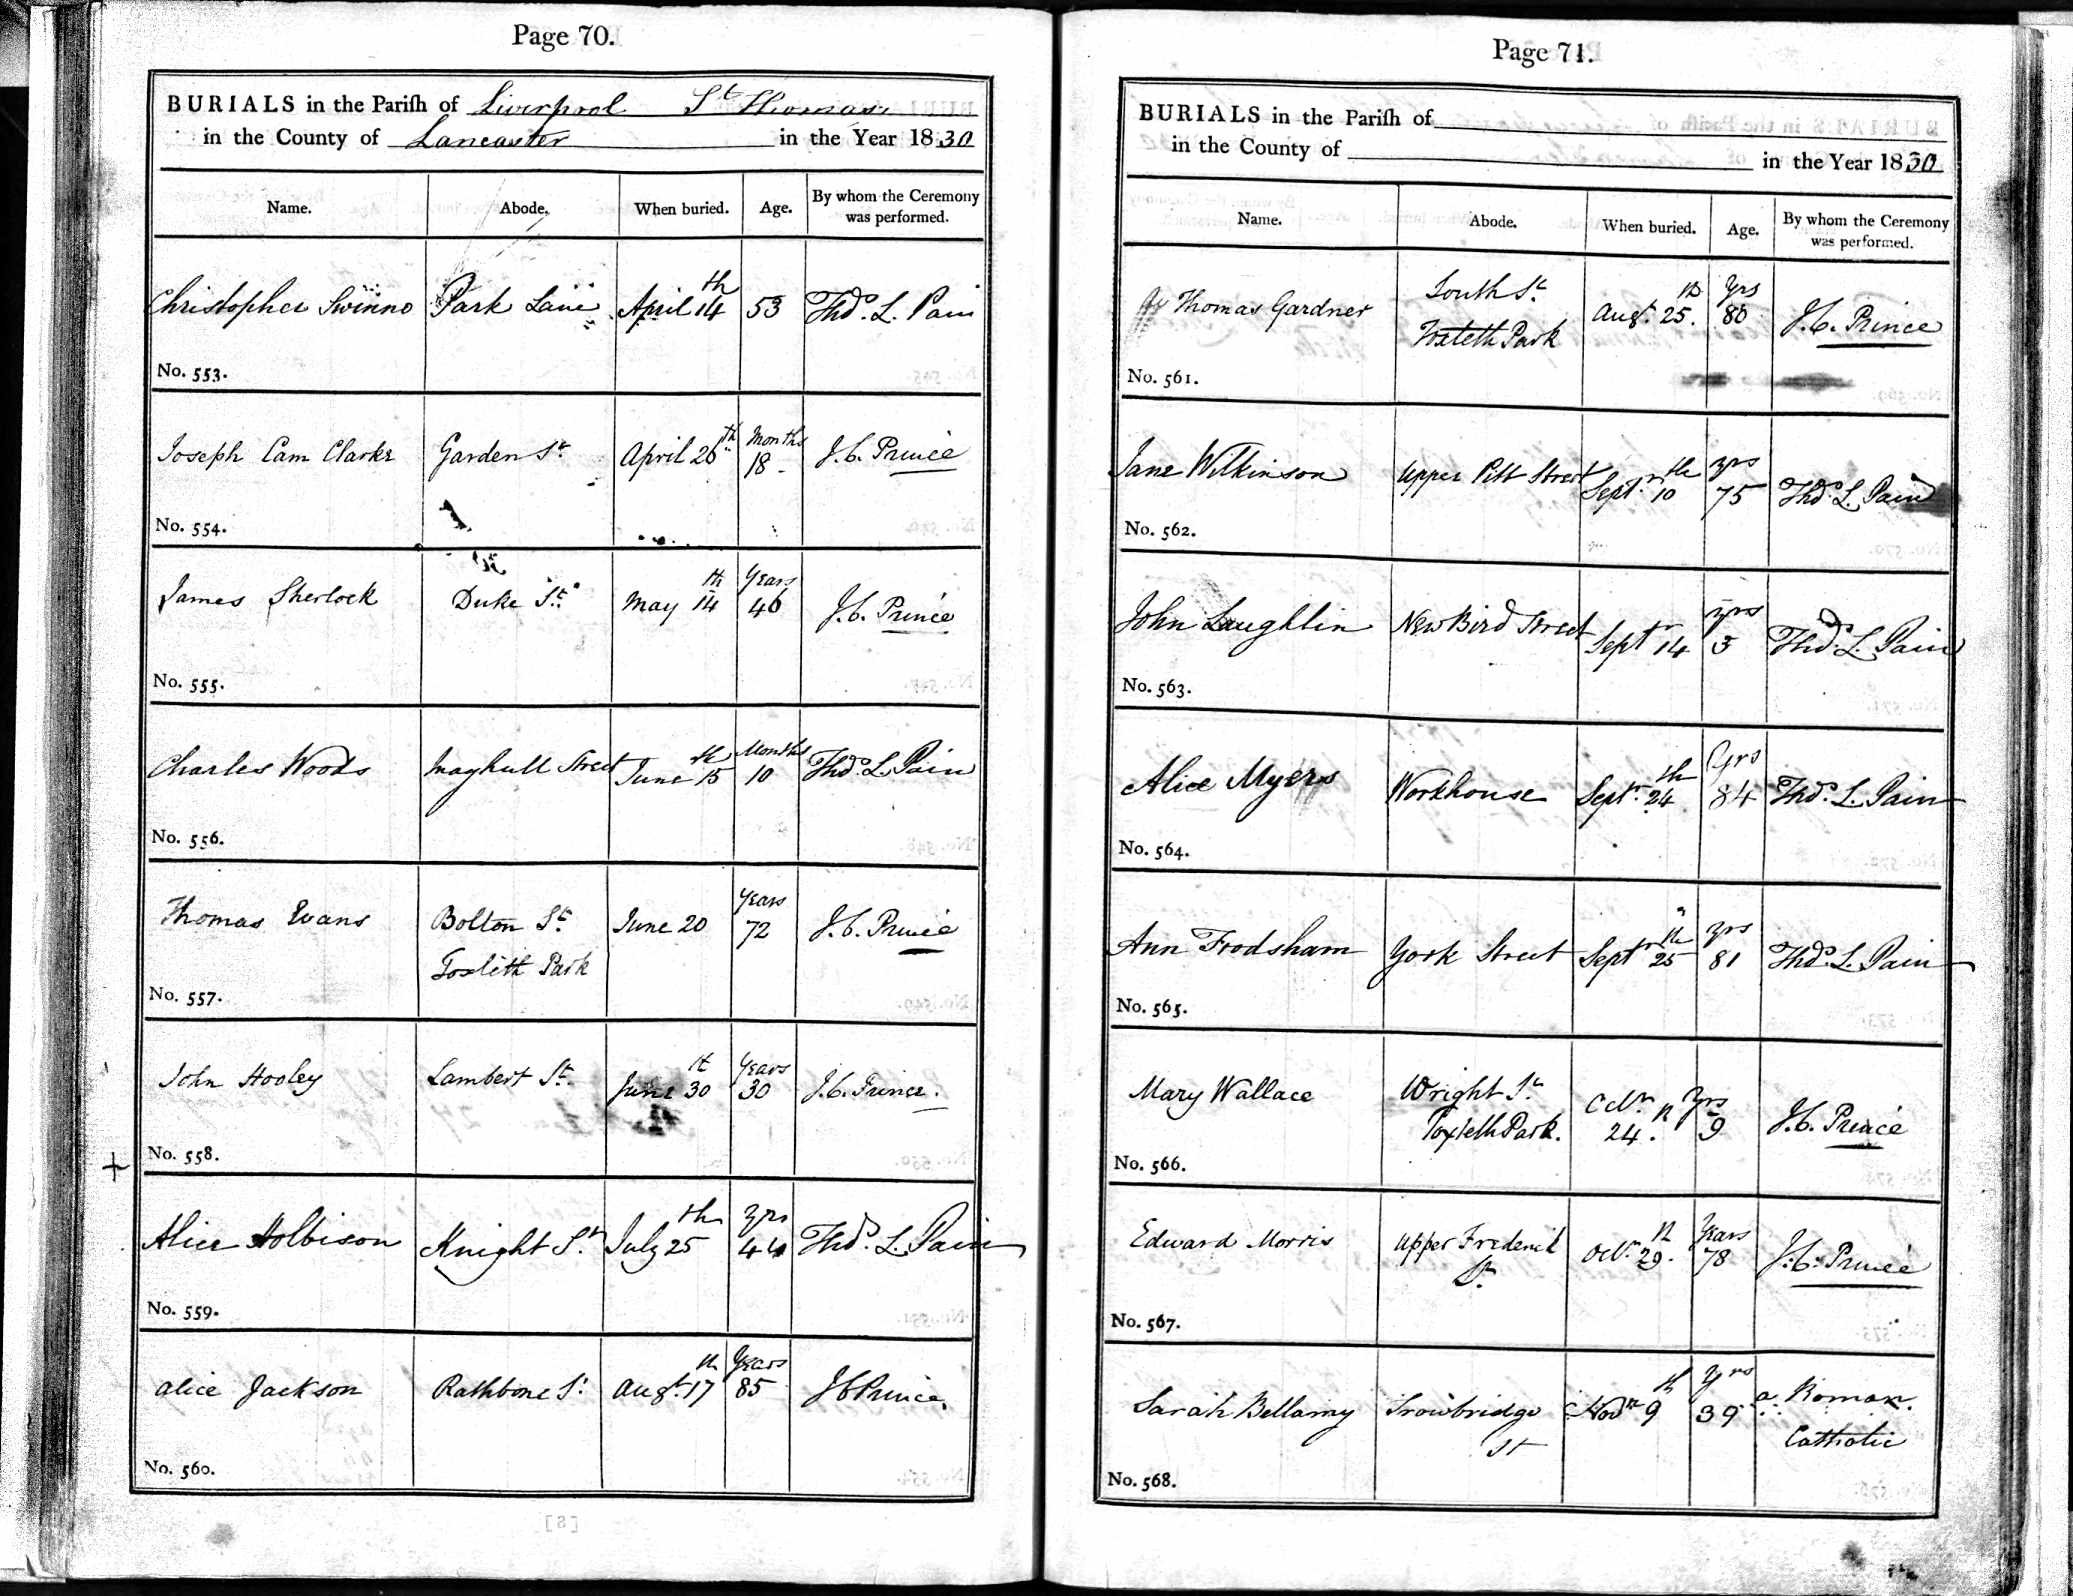 Page 70.
BURIALS in the Parish of Liverpool St Thomas
in the County of Lancaster in the Year 1830
Name. Abode. When buried. Age. By whom the Ceremony was performed.
Christopher Swinno Park Lane April 14th 53 Thos. L. Pain
No. 553.
Joseph Cam Clarke Garden St. April 26th Months 18 J.C. Prince
No. 554.
James Sherlock Duke St. May 14th Years 46 J.C. Prince
No. 555.
Charles Woods Maghull Street June 15th Months 10 Thos. L. Pain
No. 556.
Thomas Evans Bolton St. June 20 Years 72 J.C. Prince
Toxteth Park
No. 557.
John Hooley Lambert St. June 30th Years 30 J.C. Prince.
No. 558.
Alice Holbison Knight St. July 25th yrs 44 Thos. L. Pain
No. 559.
Alice Jackson Rathbone St. Augt. 17th Years 85 J C Prince
No. 560.
Page 71.
BURIALS in the Parish of
in the County of in the Year 1830
Name. Abode. When buried. Age. By whom the Ceremony was performed.
Thomas Gardner South St. Augt. 25th yrs 80 J.C. Prince
Toxteth Park
No. 561.
Jane Wilkinson Upper Pitt Street Septr. 10th yrs 75 Thos. L. Pain
No. 562.
John Laughlin New Bird Street Septr 14 yrs 3 Thos. L. Pain
No. 563.
Alice Myers Workhouse Septr. 24th yrs 84 Thos. L. Pain
No. 564.
Ann Frodsham York Street Septr 25th yrs 81 Thos. L. Pain
No. 565.
Mary Wallace Wright St. Octr. 24th. yrs 9 J.C. Prince
Toxteth Park.
No. 566.
Edward Morris Upper Frederick Octr. 29th. Years 78 J.C. Prince
St.
No. 567.
Sarah Bellamy Trowbridge Novr 9th yrs 39 a Roman.
St Catholic
No. 568.